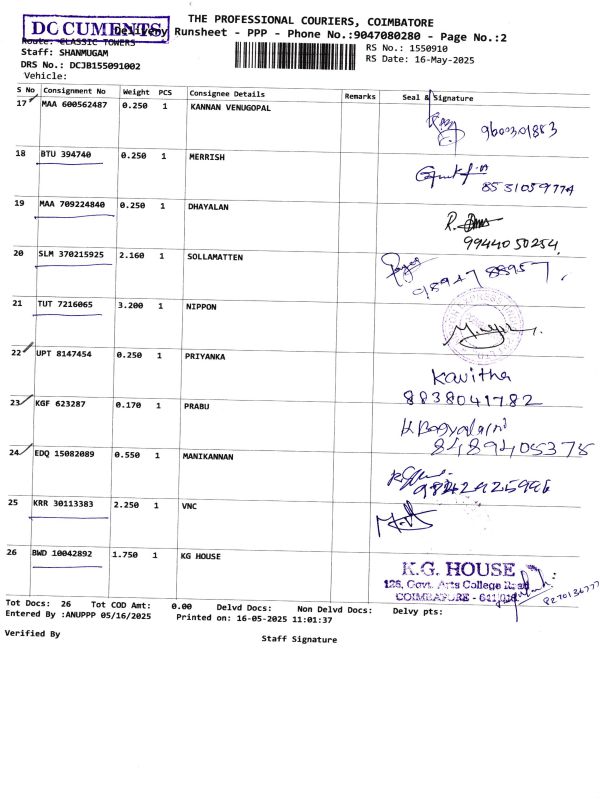 THE PROFESSIONAL COURIERS, COIMBATORE
DOCUMENTS
Delivery Runsheet - PPP - Phone No.:9047080280 - Page No.:2
Route: CLASSIC TOWERS
RS No.: 1550910
Staff: SHANMUGAM
RS Date: 16-May-2025
DRS No.: DCJB155091002
Vehicle:
S No Consignment No Weight PCS Consignee Details Remarks Seal & Signature
17 MAA 600562487 0.250 1 KANNAN VENUGOPAL
18 BTU 394740 0.250 1 MERRISH
8531059774
19 MAA 709224840 0.250 1 DHAYALAN
9944050254
20 SLM 370215925 2.160 1 SOLLAMATTEN
9894788957
21 TUT 7216065 3.200 1 NIPPON
22 UPT 8147454 0.250 1 PRIYANKA
Kavitha
8838041782
23 KGF 623287 0.170 1 PRABU
8489405375
24 EDQ 15082089 0.550 1 MANIKANNAN
25 KRR 30113383 2.250 1 VNC
26 BWD 10042892 1.750 1 KG HOUSE
K.G. HOUSE
126, Govt. Arts College Road
COIMBATORE - 641 018
Tot Docs: 26 Tot COD Amt: 0.00 Delvd Docs: Non Delvd Docs: Delvy pts:
Entered By :ANUPPP 05/16/2025 Printed on: 16-05-2025 11:01:37
Verified By
Staff Signature